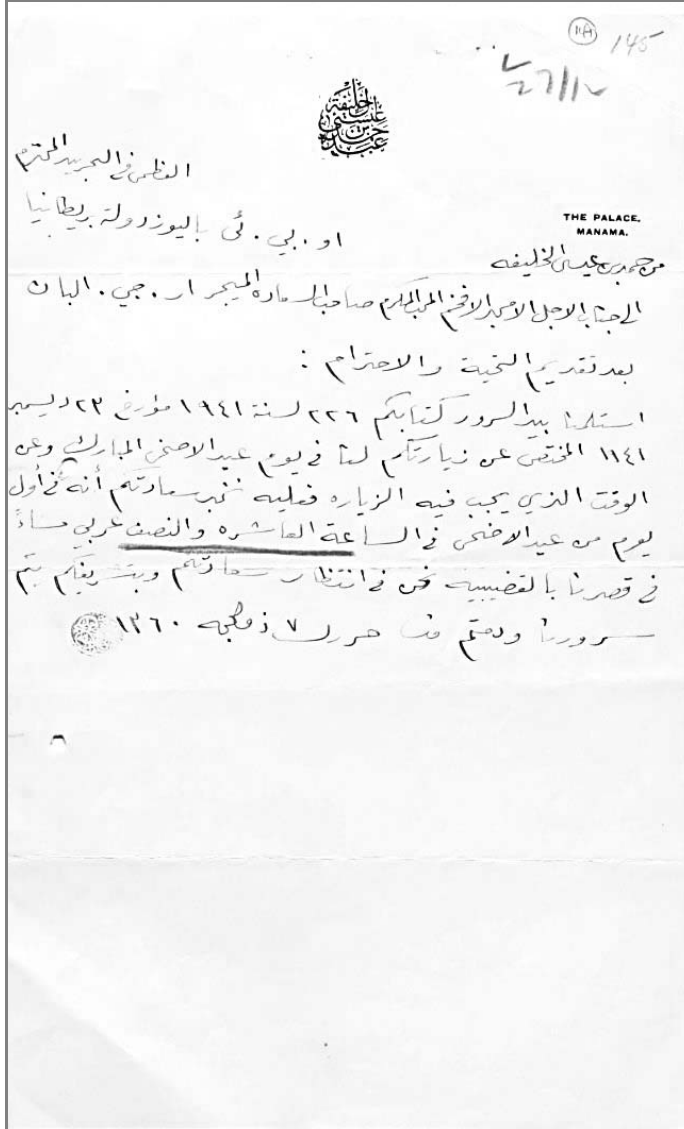 11A 145
27/12
عبده حمد بن عيسى الخليفة
THE PALACE.
MANAMA.
من حمد بن عيسى الخليفه
الى جناب الاجل الامجد الافخم المحب المكرم صاحب السعاده الميجر ار . جي . البان
او . بي . ئي باليوز دولة بريطانيا
العظمى في البحرين المحترم
بعد تقديم التحية والاحترام :
استلمنا بيد السرور كتابكم ٢٢٦ لسنة ١٩٤١ مؤرخ ٢٣ ديسمبر
١١٤١ المختص عن زيارتكم لنا في يوم عيد الاضحى المبارك وعن
الوقت الذي يجب فيه الزياره فعليه نخبر سعادتكم أنه في أول
يوم من عيد الاضحى في الساعة العاشره والنصف عربي مساءً
في قصرنا بالقضيبية نحن في انتظار سعادتكم وبتشريفكم يتم
سرورنا ودمتم حرر ٧ ذو الحجه ١٣٦٠